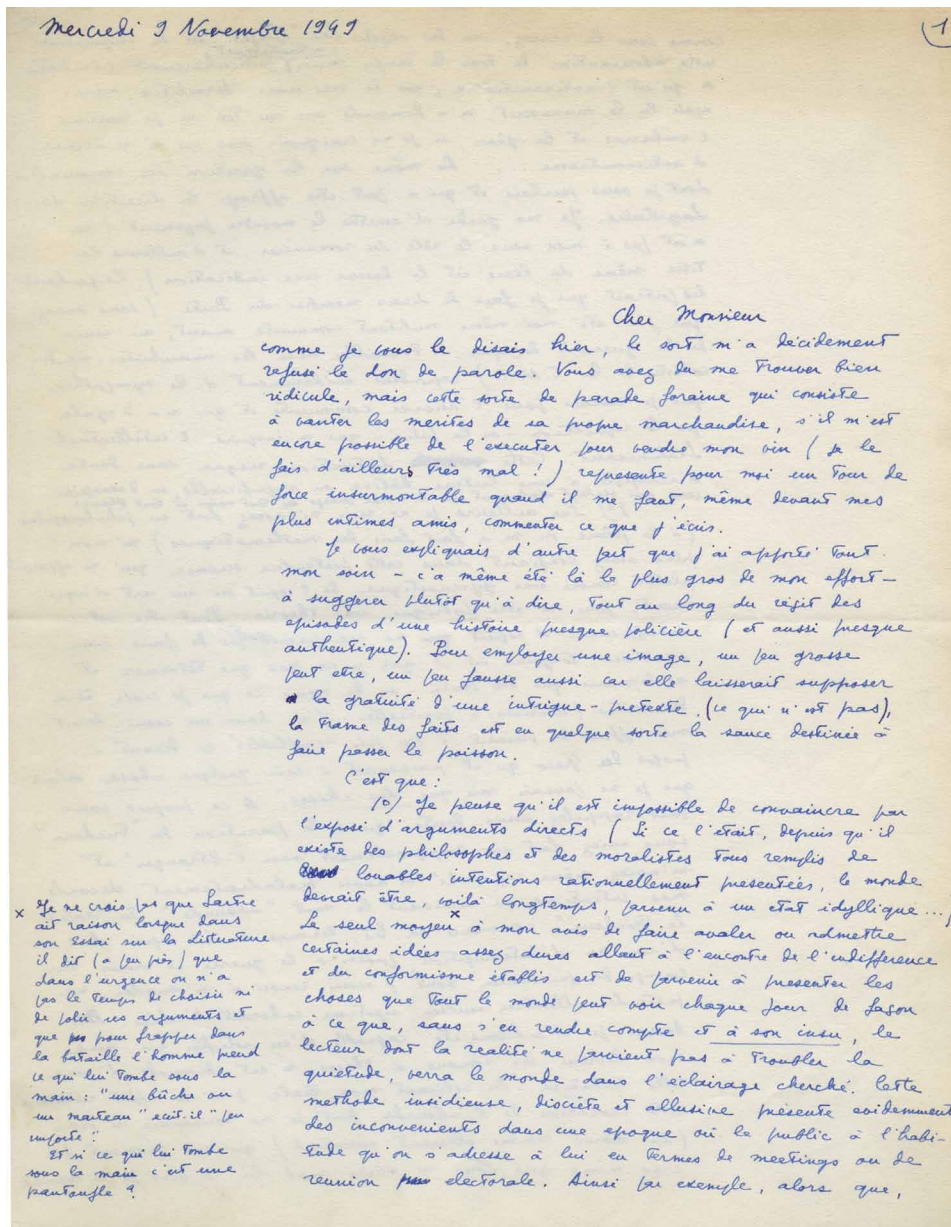 Mercredi 9 Novembre 1949
1
Cher Monsieur
comme je vous le disais hier, le sort m'a décidement
refusé le don de parole. Vous avez du me trouver bien
ridicule, mais cette sorte de parade foraine qui consiste
à vanter les merites de sa propre marchandise, s'il m'est
encore possible de l'executer pour vendre mon vin (je le
fais d'ailleurs très mal !) represente pour moi un tour de
force insurmontable quand il me faut, même devant mes
plus intimes amis, commenter ce que j'écris.
Je vous expliquais d'autre part que j'ai apporté tout
mon soin – ç'a même été là le plus gros de mon effort –
à suggerer plutôt qu'à dire, tout au long du récit des
episodes d'une histoire presque policière (et aussi presque
authentique). Pour employer une image, un peu grosse
peut etre, un peu fausse aussi car elle laisserait supposer
la gratuité d'une intrigue-pretexte (ce qui n'est pas),
la trame des faits est en quelque sorte la sauce destinée à
faire passer le poisson.
C'est que :
1o) Je pense qu'il est impossible de convaincre par
l'exposé d'arguments directs (Si ce l'était, depuis qu'il
existe des philosophes et des moralistes tous remplis de
louables intentions rationnellement presenteés, le monde
devrait être, voilà longtemps, parvenu à un etat idyllique...)
Le seul moyen x à mon avis de faire avaler ou admettre
certaines idées assez dures allant à l'encontre de l'indifference
et du conformisme établis est de parvenir à presenter les
choses que tout le monde peut voir chaque jour de façon
à ce que, sans s'en rendre compte et à son insu, le
lecteur dont la realité ne parvient pas à troubler la
quietude, verra le monde dans l'éclairage cherché. Cette
methode insidieuse, discrète et allusive présente evidemment
des inconvenients dans une epoque où le public à l'habi-
tude qu'on s'adresse à lui en termes de meetings ou de
reunion electorale. Ainsi par exemple, alors que,
x Je ne crois pas que Sartre
ait raison lorsque dans
son Essai sur la Litterature
il dit (a peu près) que
dans l'urgence on n'a
pas le temps de choisir ni
de polir ses arguments et
que pour frapper dans
la bataille l'homme prend
ce qui lui tombe sous la
main : "une bûche ou
un marteau" ecrit-il "peu
importe".
Et si ce qui lui tombe
sous la main c'est une
pantoufle ?